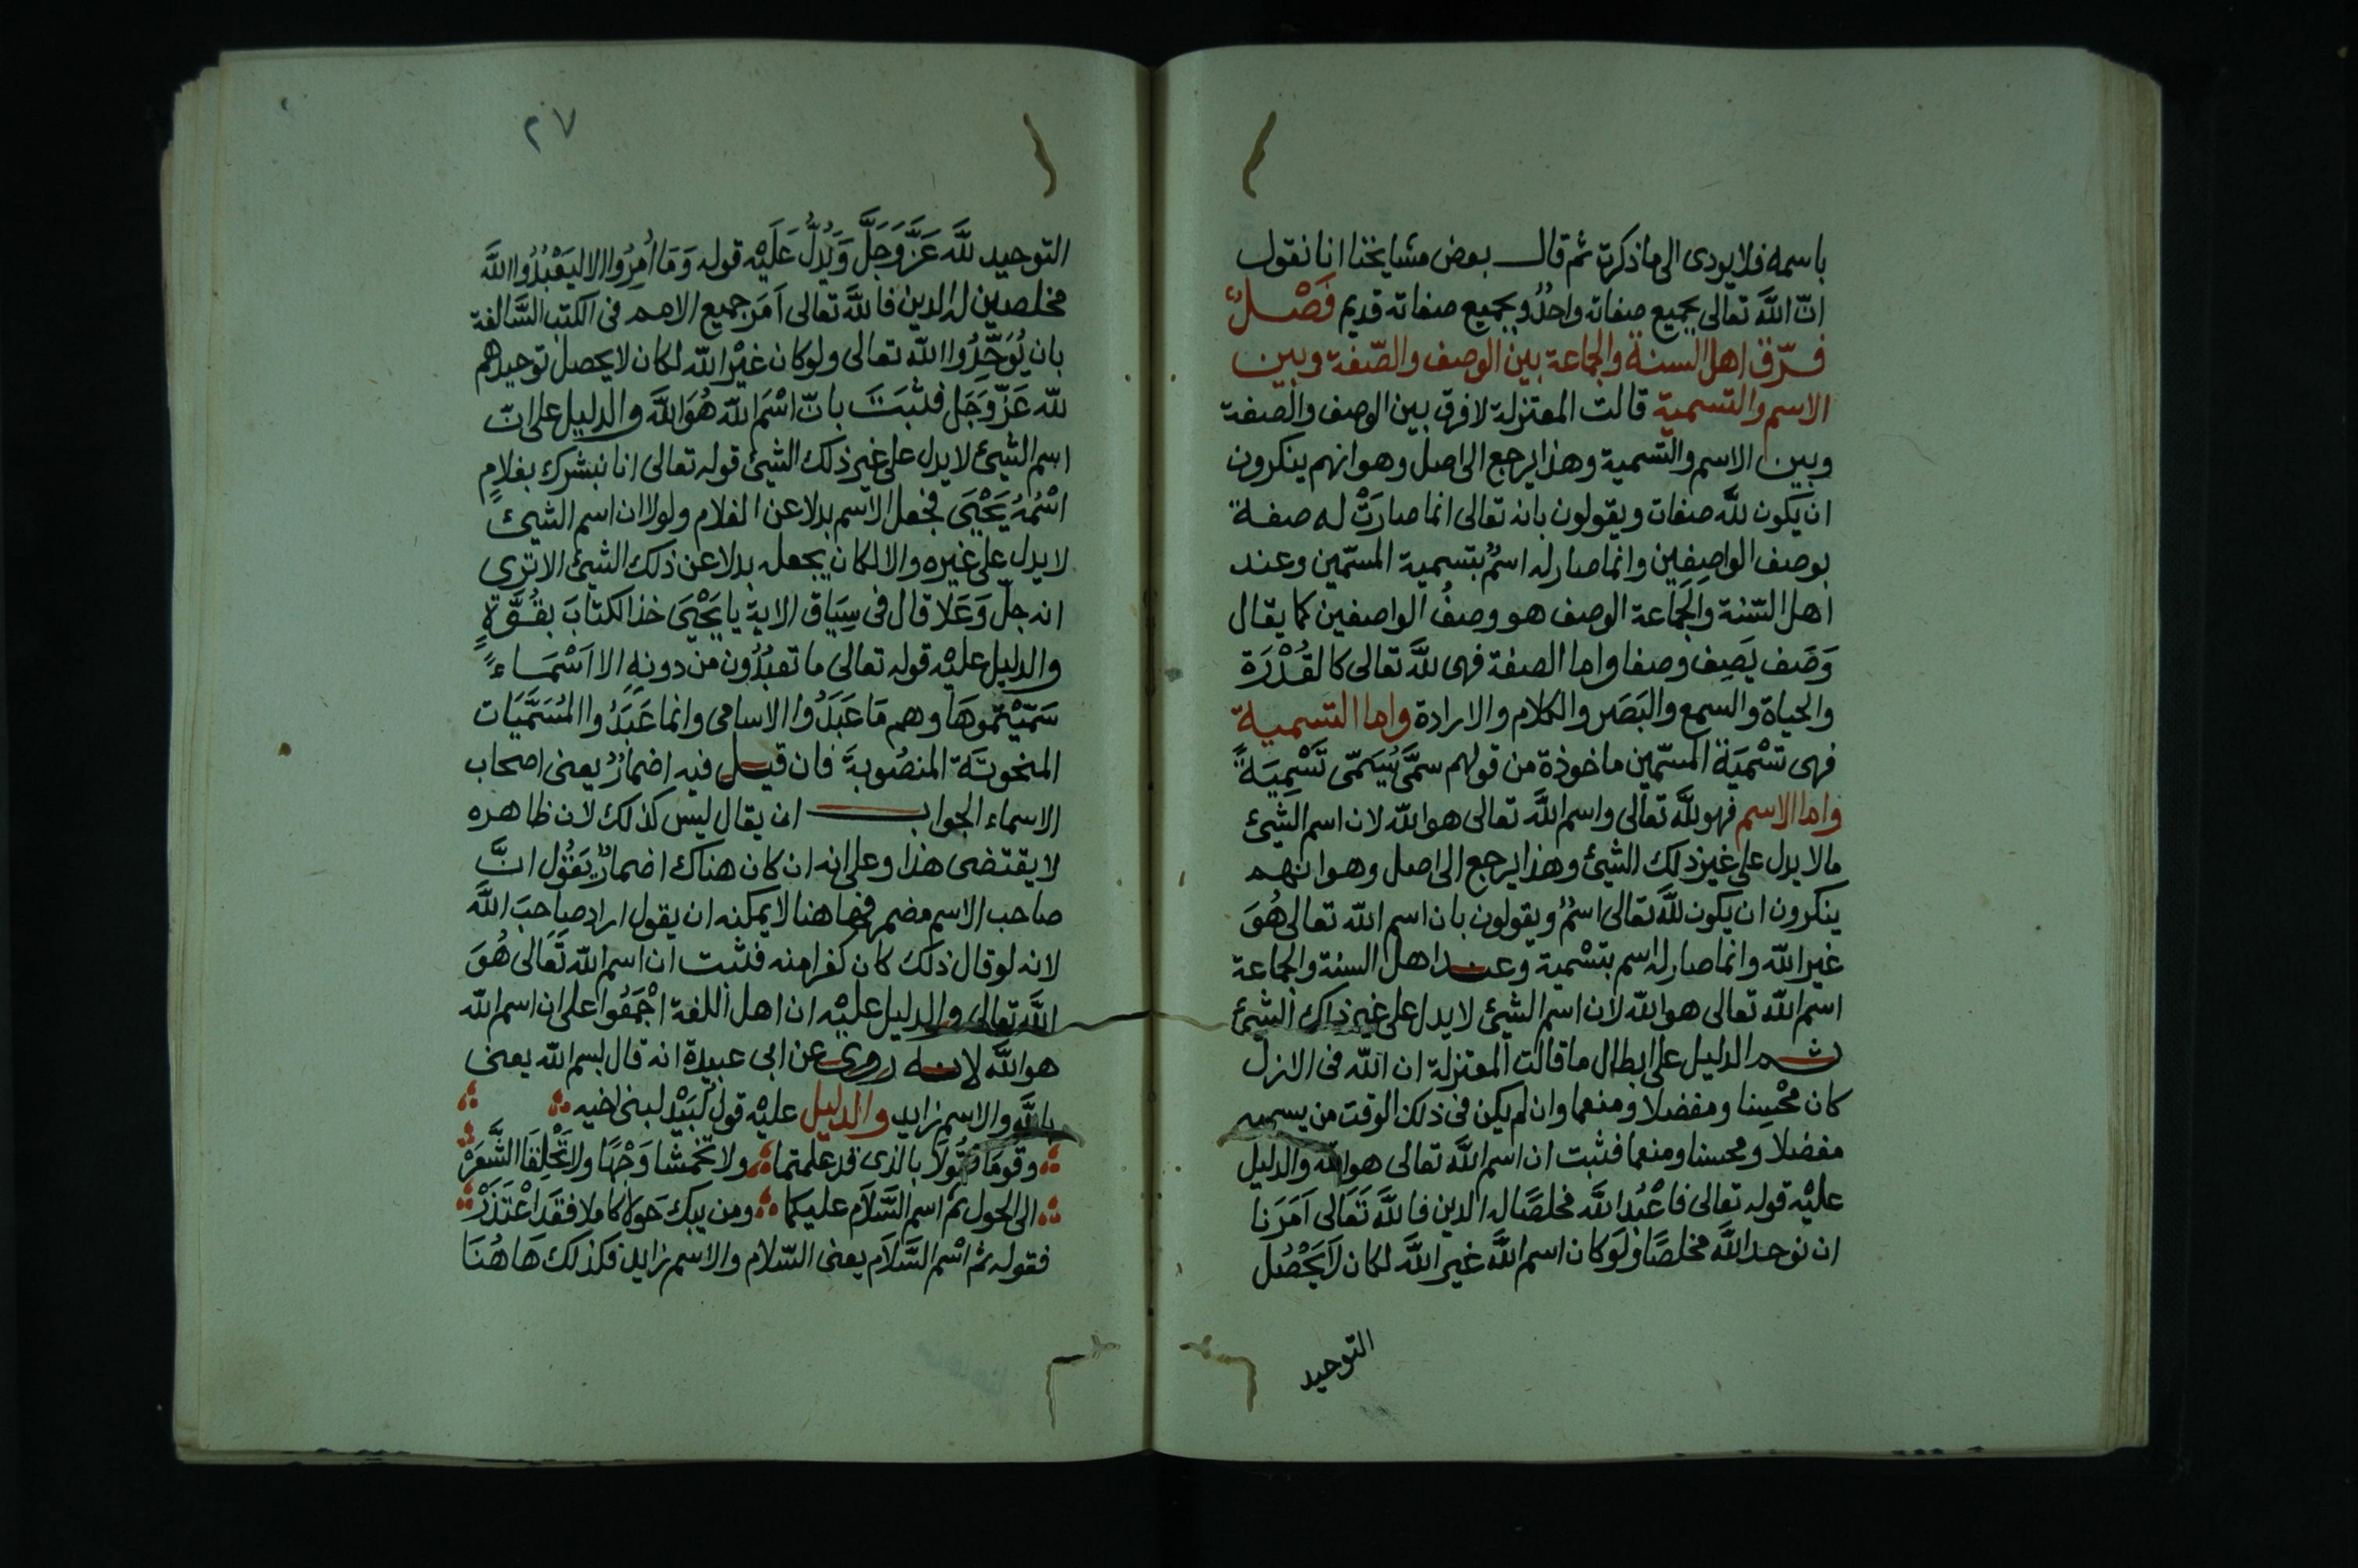 باسمه فلا يودى الى ما ذكرت ثم قال بعض مشايخنا انا نقول
انّ اللّه تعالى بجميع صفاته واحدٌ وبجميع صفاته قديم فَصْلٌ
فرّق اهل السنة والجماعة بين الوصف والصّفة وبين
الاسم والتسمية قالت المعتزلة لا فرق بين الوصف والصفة
وبين الاسم والتسمية وهذا يرجع الى اصل وهو انهم ينكرون
ان يكون للّه صفات ويقولون بانه تعالى انما صارَتْ له صفة
بوصف الواصِفِين وانما صار له اسمٌ بتسمية المسمّين وعند
اهل السّنة والجَماعة الوصف هو وصفُ الواصفين كما يقال
وَصَف يَصِف وصفا واما الصفة فهى للّه تعالى كالقُدْرَة
والحياة والسمع والبَصَر والكلام والارادة واما التسمية
فهى تسْمِيَة المسّمين ماخوذة من قولهم سمَّى يُسَمّى تَسْمِيَةً
واما الاسم فهو للّه تعالى واسم اللّه تعالى هو اللّه لان اسم الشيئ
مالا يدل على غير ذلك الشيئ وهذا يرجع الى اصل وهو انهم
ينكرون ان يكون للّه تعالى اسمٌ ويقولون بان اسم اللّه تعالى هُوَ
غير اللّه وانما صار له اسم بتسْمية وعند اهل السنة والجماعة
اسم اللّه تعالى هو اللّه لان اسم الشيئ لا يدل على غير ذاك الشيئ
ثم الدليل على ابطال ما قالت المعتزلة ان اللّه فى الازل
كان محْسِنا ومفضلا ومنعما وان لم يكن فى ذلك الوقت من يسميه
مفضلا ومحسنا ومنعما فثبت ان اسم اللّه تعالى هو اللّه والدليل
عليْه قوله تعالى فاعْبُد اللّه مخلصًا له الدين فاللّه تَعَالى اَمَرَنا
ان نوحد اللّه مخلصًا ولَوكان اسم اللّه غير اللّه لكان لَا يَحْصُل
التوحيد
٢٧
التوحيد للّه عَزَّ وَجَلَّ وَيَدُلُّ عَلَيْه قوله وَمَا اُمِرُوا الا ليَعْبُدُوا اللّه
مخلصين له الدين فاللّه تعالى اَمَر جميع الامم فى الكتب السَّالفة
بان يُوَحِّدُوا اللّه تعالى ولو كان غيْر اللّه لكان لا يحصل توحيدهم
للّه عَزّ وَجَل فثبَتَ بانّ اسْمَ اللّه هُوَ اللّه والدليل على انّ
اسم الشيئ لا يدل على غير ذلك الشيئ قوله تعالى انا نبشرك بغلامٍ
اسْمُهُ يَحْيَى فجعل الاسم بدلا عن الغلام ولولا ان اسم الشيئ
لا يدل على غيره والا لكان يجعله بدلا عن ذلك الشيئ الا ترى
انه جلّ وَعَلا قال فى سِيَاق الاية يا يَحْيَى خذ الكتَابَ بقُوَّةٍ
والدليل عليْه قوله تعالى ما تعبُدُون من دونهِ الا اَسْمَاءً
سَمّيْتموهَا وهم مَا عَبَدُوا الاسامى وانما عَبَدُوا المُسَمَّيَات
المنحوتَة المنصُوبةَ فان قيل فيه اضمارٌ يعنى اصحاب
الاسماء الجواب ان يقال ليس كذلك لان ظاهره
لا يقتضى هذا وعلى انه ان كان هناك اضمارٌ يَقُول انَّ
صاحب الاسم مضمر فها هنا لا يمكنه ان يقول اراد صاحِبَ اللّه
لانه لو قال ذلك كان كفرا منه فثبت ان اسم اللّه تَعَالى هُوَ
اللّه تعالى والدليل عليْه ان اهل اللغة اجْمَعُوا على ان اسم اللّه
هو اللّه لانه روى عن ابى عبيدة انه قال بسم اللّه يعنى
باللّه والاسم زايد والدليل عليْه قول لَبَيْد لبنى اخيه
وقومَا فقُولَا بالذى قد علمتما ولا تخمشا وَجْهًا ولا تَحْلِقَا الشَّعَرْ
الى الحول ثم اسم السَّلَام عليكما ومن يبك حَولا كاملا فقَد اعْتَذَرْ
فقوله ثم اسْم السَّلَام يعنى السّلام والاسم زايد فكذلك هَاهُنَا